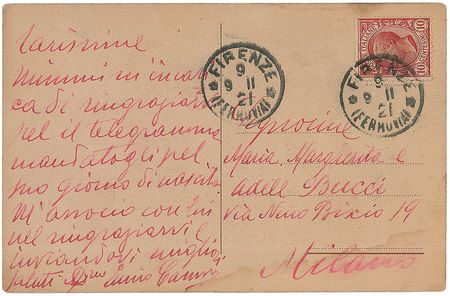 Carissime
Mimmi m'incari
ca di ringraziarvi
pel il telegramma
mandatogli pel
suo giorno di nascita
M'associo con lui
nel ringraziarvi e
inviandovi migliori
saluti Enrico Caruso
FIRENZE
9
9 II
21
(FERROVIA)
FIRENZE
9
9 II
21
(FERROVIA)
POSTE ITALIANE
10
CENTESIMI
10
Signorine
Maria Margherita e
Adele Bucci
Via Nino Bixio 19
Milano